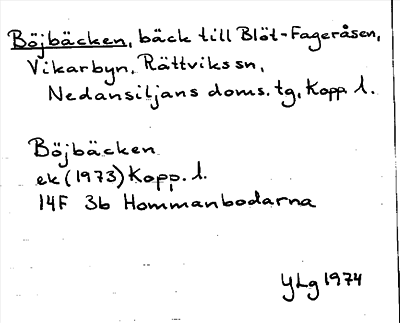 Böjbäcken, bäck till Blöt-Fageråsen,
Vikarbyn, Rättviks sn,
Nedansiljans doms. tg, Kopp. l.
Böjbäcken
ek (1973) Kopp. l.
14F 3b Hommanbodarna
YLg 1974